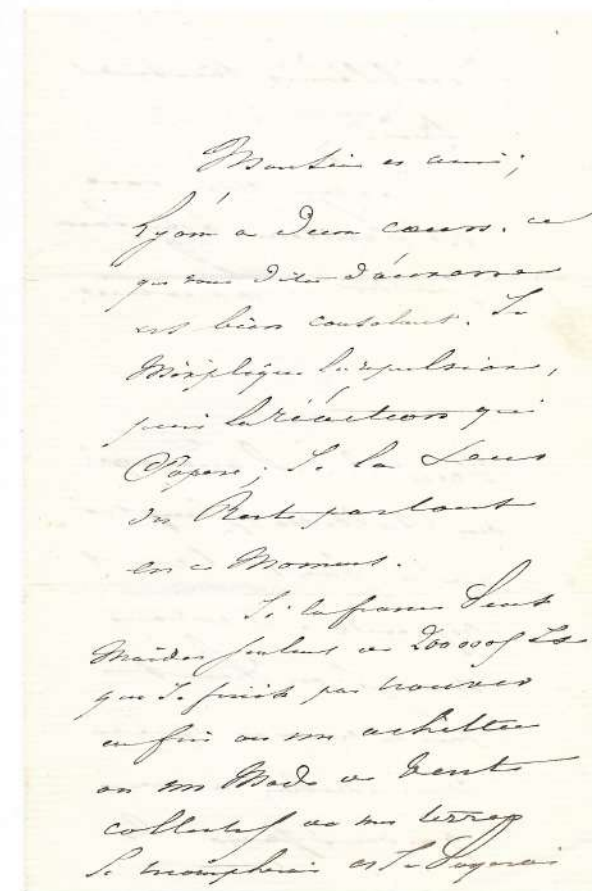 Monsieur et ami;
Lyon a deux cœurs. ce
que vous dites d'
est bien consolant. Je
M'explique la répulsion,
puis la réaction qui
S'opère; Je la Sens
du Reste partout
en ce Moment.
Si la france Veut
M'aider seulement de 200 000f Et
que Je finisse par trouver
enfin ou un acheteur
ou un Mode de Vente
collectif de mes terres
Je triompherai et Je Payerai